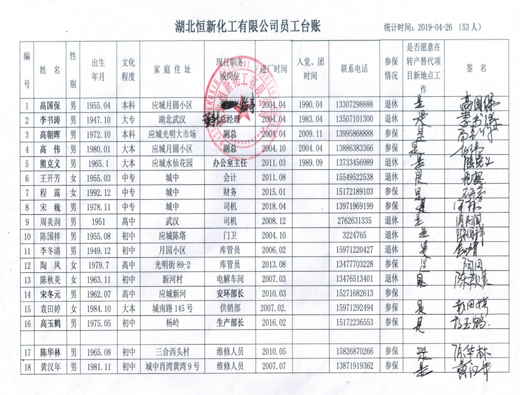 湖北恒新化工有限公司员工台账
统计时间：2019-04-26 （53人）
编号 姓名 性别 出生年月 文化程度 家庭住址 现任职务或岗位 进厂时间 入党、团时间 联系电话 参保情况 是否愿意在转产替代项目新地点工作 签名
1 高国保 男 1955.04 本科 应城月圆小区 2004.04 1990.04 13307298888 退休 是
2 李书涛 男 1947.10 大专 湖北武汉 总经理 2004.04 1983.04 13507101300 退休 是
3 高朝晖 男 1972.10 本科 应城光明大市场 副总 2004.04 2009.11 13995868888 参保 是
4 高伟 男 1980.01 大本 应城月圆小区 副总 2004.10 2004.04 13886383366 参保 是
5 熊克义 男 1965.1 大专 应城水仙花园 办公室主任 2011.03 1989.09 13733456989 参保 是
6 王开芳 女 1955.03 中专 城中 会计 2011.08 15549522538 退休 是
7 程露 女 1992.12 中专 城中 财务 2015.01 15172189103 参保 是
8 宋巍 男 1978.11 中专 城中 司机 2018.04 13971969199 参保 是
9 周炎润 男 1951 高中 武汉 司机 2008.12 2762631335 退休 是
10 陈国祥 男 1955.08 初中 应城陈塔 门卫 2004.10 3224765 退休 是
11 李冬清 男 1949.12 初中 月园小区 库管员 2006.02 15971220427 退休 是
12 陶凤 女 1979.7 高中 光明街89-2 库管员 2013.08 13477703228 参保 是
13 陈秋美 女 1963.11 初中 新河村 电解车间 2007.03 13476513401 退休 是
14 宋冬元 男 1962.07 高中 应城新河 安环部长 2010.03 15271682163 参保
15 袁田婷 女 1984.10 大本 城南路165号 供销部 2007.02. 15971292494 参保 是
16 高玉鹤 男 1975.05 初中 杨岭 生产部长 2016.02 15172235553 参保 是
17 陈华林 男 1965.08 初中 三合西头村 维修人员 2010.05 15826870266 参保 是 陈华林
18 黄汉年 男 1981.11 初中 城中肖湾黄湾9号 维修人员 2007.07 13871919362 参保 是 黄汉年